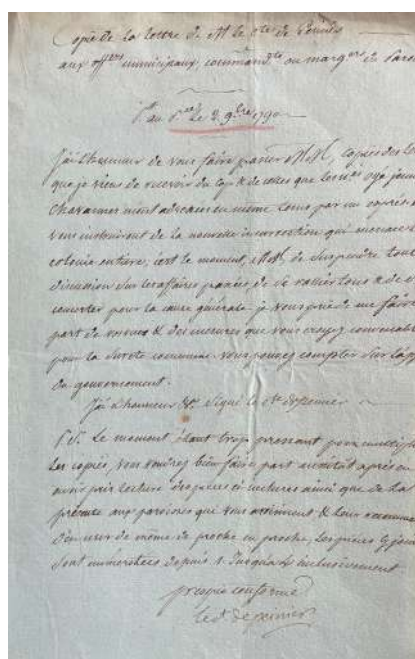 Copie de la lettre de M. le Cte de Peinier
aux offers municipaux, commandts ou margers de Paroi
P. au P.ce le 2. 9bre 1790
J'ai l'honneur de vous faire passer MM, copies des le
que je viens de recevoir du Cap & de celles que les srs Ogé jeune
Chavannes m'ont adressées en même tems par un exprès e
vous instruiront de la nouvelle insurrection qui menace l
colonie entière; c'est le moment, MM, de suspendre tout
discussion sur les affaires passées de se rallier tous & de se
concerter pour la cause générale. je vous prie de me faire
part de vos vues & des mesures que vous croyez convenable
pour la sureté commune. vous pouvez compter sur l'app
du gouvernement.
J'ai l'honneur &c. signé le Cte de Peinier
P.S. Le moment étant trop pressant pour multipli
les copies, vous voudrez bien faire part aussitôt après en
avoir pris lecture des pièces ci incluses ainsi que de la
présente aux paroisses qui vous avoisinent & leur recomma
d'en user de même de proche en proche. Les pièces cy join
sont numérotées depuis 1. Jusqu'à inclusivement
pr copie conforme
le Ct de peinier